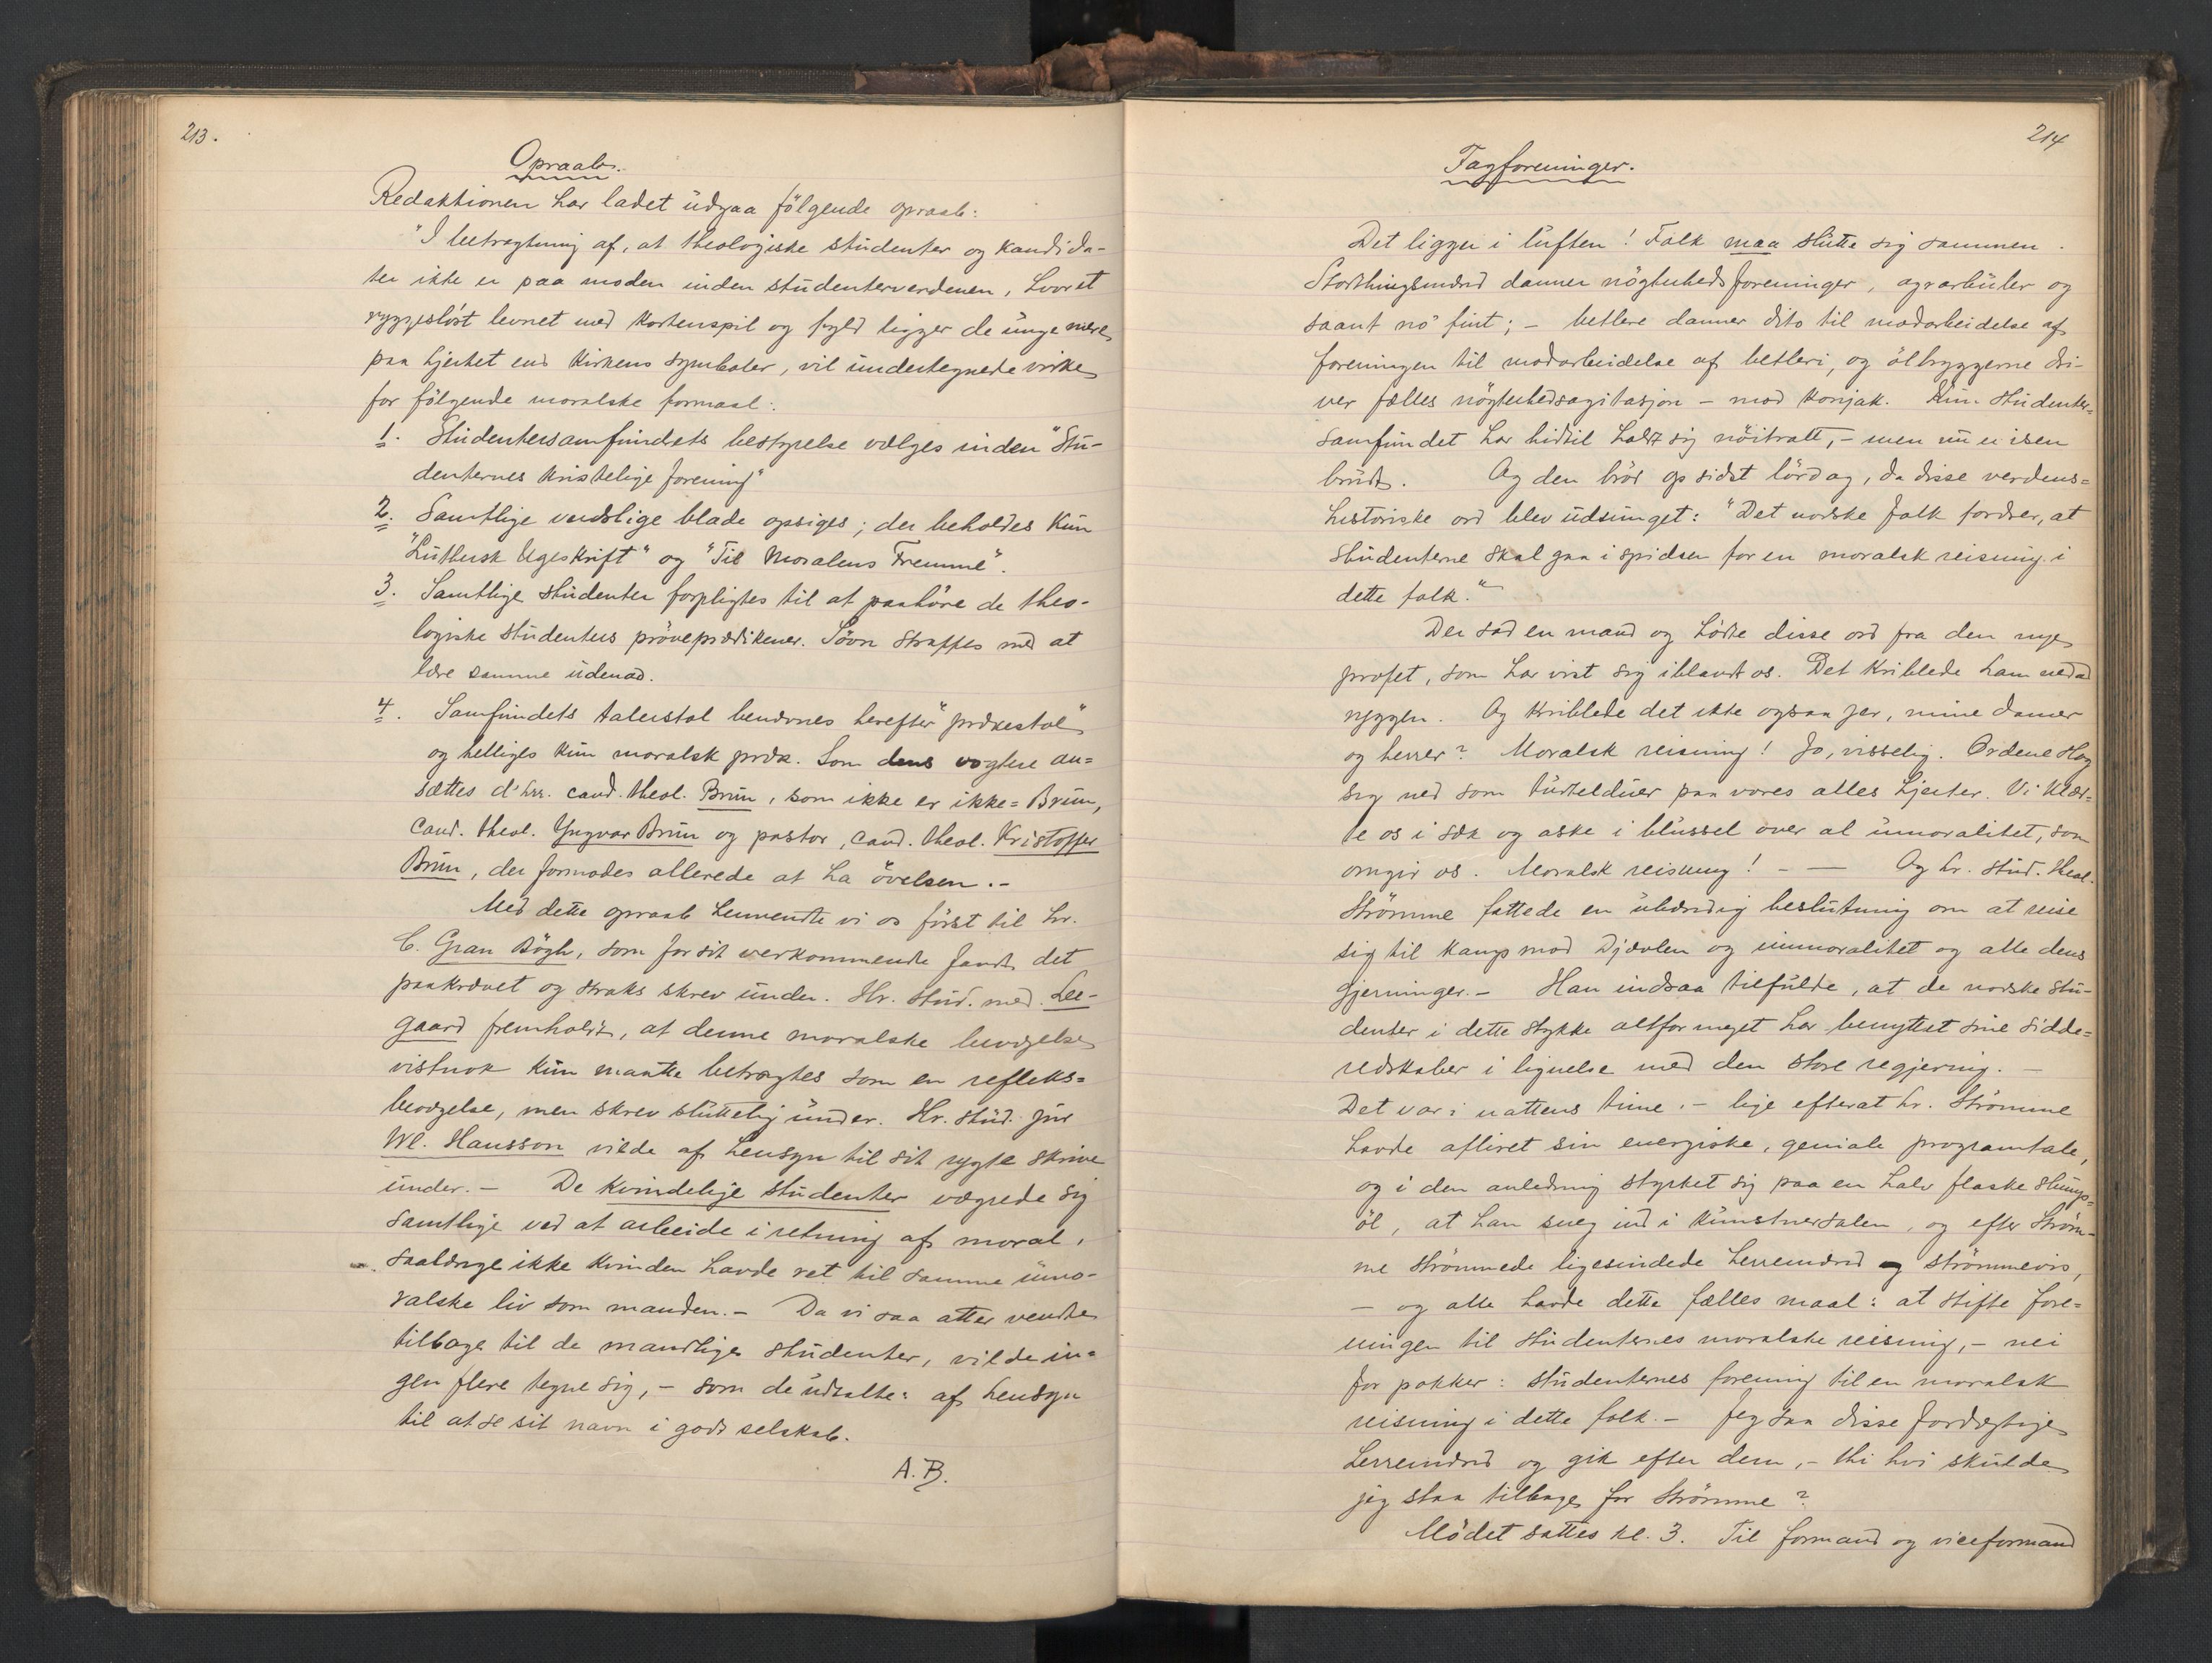 213.
Opraab.
Redaktionen har ladet udgaa følgende opraab:
"I betragtning af, at theologiske studenter og kandida-
ter ikke er paa moden inden studenterverdenen, hvor et
ryggesløst levnet med kortenspil og fyld ligger de unge mere
paa hjertet end kirkens symboler, vil undertegnede virke
for følgende moralske formaal:
1. Studentersamfundets bestyrelse vælges inden "Stu-
denternes kristelige forening"
2. Samtlige verdslige blade opsiges; der beholdes kun
"Luthersk Ugeskrift" og "Til Moralens Fremme".
3. Samtlige studenter forpligtes til at paahöre de theo-
logiske studenters pröveprædikener. Sövn straffes med at
lære samme udenad.
4. Samfundets talerstol benævnes herefter "prækestol"
og helliges kun moralsk præk. Som dens vogtere an-
sættes d'hrr. cand. theol. Brun, som ikke er ikke-Brun,
cand. theol. Yngvar Brun og pastor, cand. theol. Kristoffer
Brun, der formodes allerede at ha övelsen.-
Med dette opraab henvendte vi os först til hr.
C. Gran Bögh, som for sit verkommende fandt det
paakrævet og straks skrev under. Hr. stud. med. Lee-
gaard fremholdt, at denne moralske bevægelse
vistnok kun maatte betragtes som en refleks-
bevægelse, men skrev sluttelig under. Hr. stud. jur
Wl. Hansson vilde af hensyn til sit rygte skrive
under. - De kvindelige studenter vægrede sig
samtlige ved at arbeide i retning af moral,
saalænge ikke kvinden havde ret til samme umo-
ralske liv som manden. - Da vi saa atter vendte
tilbage til de mandlige studenter, vilde in-
gen flere tegne sig, - som de udtalte: af hensyn
til at se sit navn i godt selskab.
A. B.
214
Fagforeninger.
Det ligger i luften! Folk maa slutte sig sammen.
Storthingsmænd danner nögterhedsforeninger, agrarklubber og
saant no' fint; - betlere danner dito til modarbeidelse af
foreningen til modarbeidelse af betleri, og ölbryggerne dri-
ver fælles nögterhedsagitasjon - mod konjak. Kun Studenter-
samfundet har hidtil holdt sig nöitralt, - men nu er isen
brudt. Og den bröd op sidst lördag, da disse verdens-
historiske ord blev udslunget: "Det norske folk fordrer, at
studenterne skal gaa i spidsen for en moralsk reisning i
dette folk."
Der sad en mand og hørte disse ord fra den nye
profet, som har vist sig iblandt os. Det kriblede ham nedad
ryggen. Og kriblede det ikke ogsaa jer, mine damer
og herrer? Moralsk reisning! Jo, visselig. Ordene slog
sig ned som turtelduer paa vores alles hjerter. Vi klæd-
te os i sæk og aske i blussel over al umoralitet, som
omgir os. Moralsk reisning! - — Og hr. stud. theol.
Strömme fattede en ubændig beslutning om at reise
sig til kamp mod Djævlen og immoralitet og alle dens
gjerninger. - Han indsaa tilfulde, at de norske stu-
denter i dette stykke altfor meget har benyttet sine sidde-
redskaber i lignelse med den store regjering. -
Det var i nattens time. - lige efterat hr. Strömme
havde afliret sin energiske, geniale programtale,
og i den anledning styrket sig paa en halv flaske slumps-
öl, at han sneg ind i kunstnersalen, og efter Ström-
me strömmede ligesindede herremænd og strömmevis,
- og alle havde dette fælles maal: at stifte fore-
ningen til studenternes moralske reisning, - nei
for pokker: studenternes forening til en moralsk
reisning i dette folk. - Jeg saa disse fordægtige
herremænd og gik efter dem, - thi hvi skulde
jeg staa tilbage for Strömme?
Mödet sattes kl. 3. Til formand og viceformand